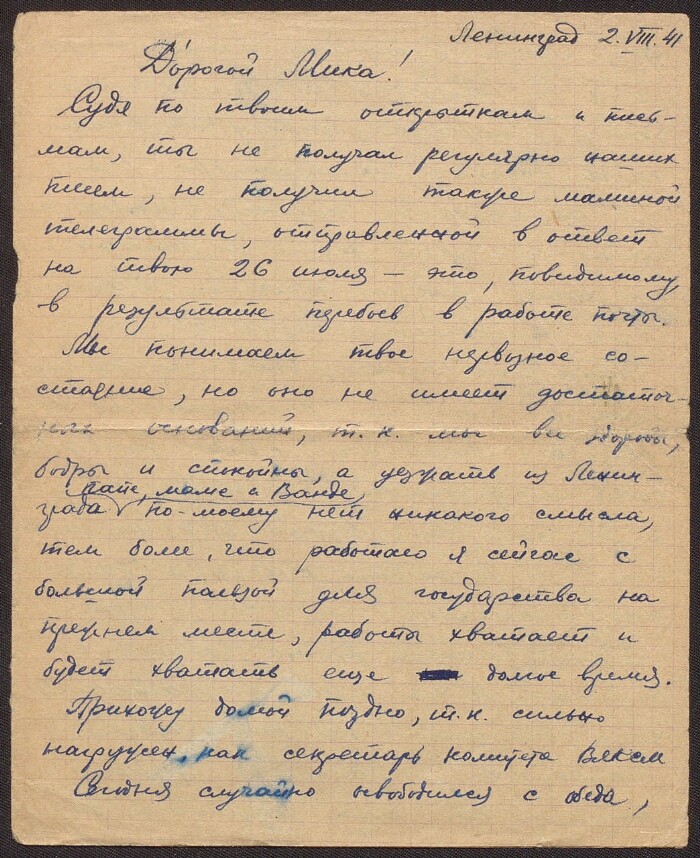 Ленинград 2.VIII.41
Дорогой Мика!
Судя по твоим открыткам и пись-
мам, ты не получал регулярно наших
писем, не получил также маминой
телеграммы, отправленной в ответ
на твою 26 июля — это, повидимому,
в результате перебоев в работе почты.
Мы понимаем твое нервозное со-
стояние, но оно не имеет достаточ-
ных оснований, т.к. мы все здоровы,
бодры и спокойны, а уезжать из Ленин-
папе, маме и Ванде,
града по-моему нет никакого смысла,
тем более, что работаю я сейчас с
большой пользой для государства на
прежнем месте, работы хватает и
будет хватать еще долгое время.
Прихожу домой поздно, т.к. сильно
нагружен, как секретарь комитета ВЛКСМ
Сегодня случайно освободился с обеда,